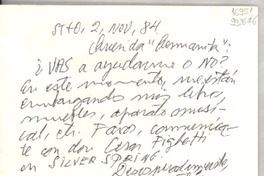 Stgo, 2, Nov, 84
Querida "Hermanita":
¿VAS a ayudarme o NO?
En este momento, me están
embargando mis libros,
muebles, aparato musi-
cal, etc. Favor, comunica-
te con don Cesar Fighetti
en SILVER SPRING.
Desesperadamente,